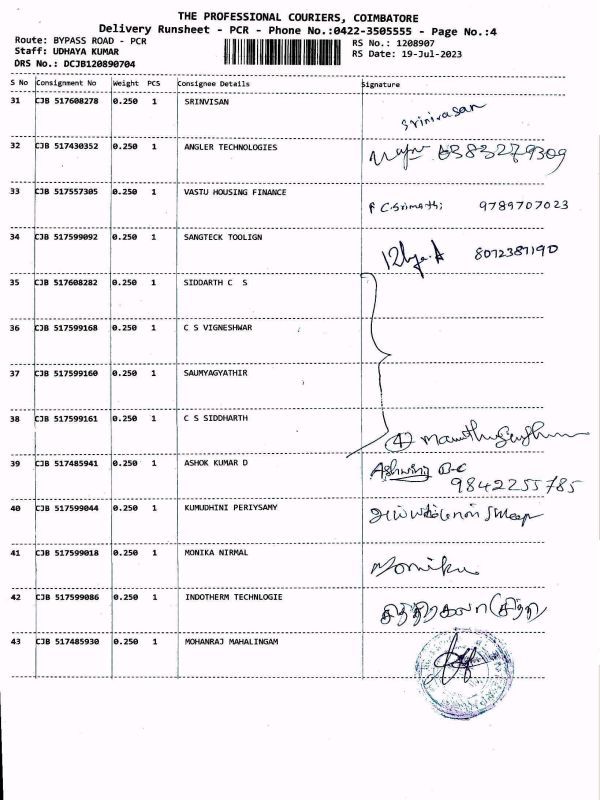 THE PROFESSIONAL COURIERS, COIMBATORE
Delivery Runsheet - PCR - Phone No.:0422-3505555 - Page No.:4
Route: BYPASS ROAD - PCR RS No.: 1208907
Staff: UDHAYA KUMAR RS Date: 19-Jul-2023
DRS No.: DCJB120890704
S No Consignment No Weight PCS Consignee Details Signature
31 CJB 517608278 0.250 1 SRINVISAN Srinivasan
32 CJB 517430352 0.250 1 ANGLER TECHNOLOGIES
33 CJB 517557305 0.250 1 VASTU HOUSING FINANCE 9789707023
34 CJB 517599092 0.250 1 SANGTECK TOOLIGN 8072387190
35 CJB 517608282 0.250 1 SIDDARTH C S
36 CJB 517599168 0.250 1 C S VIGNESHWAR
37 CJB 517599160 0.250 1 SAUMYAGYATHIR
38 CJB 517599161 0.250 1 C S SIDDHARTH 4
39 CJB 517485941 0.250 1 ASHOK KUMAR D
9842255785
40 CJB 517599044 0.250 1 KUMUDHINI PERIYSAMY
41 CJB 517599018 0.250 1 MONIKA NIRMAL Monika
42 CJB 517599086 0.250 1 INDOTHERM TECHNLOGIE
43 CJB 517485930 0.250 1 MOHANRAJ MAHALINGAM